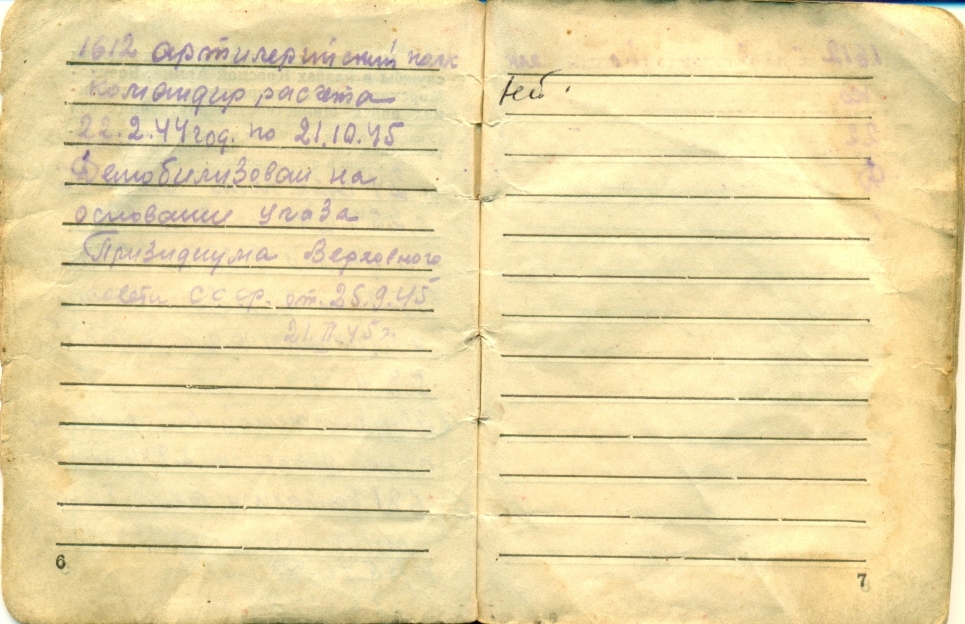 1612 артилерийский полк
Командир расчета
22.2.44 год. по 21.10.45
Демобилизован на
основание указа
Призидиума Верховного
Совета СССР. от. 25.9.45
6
7